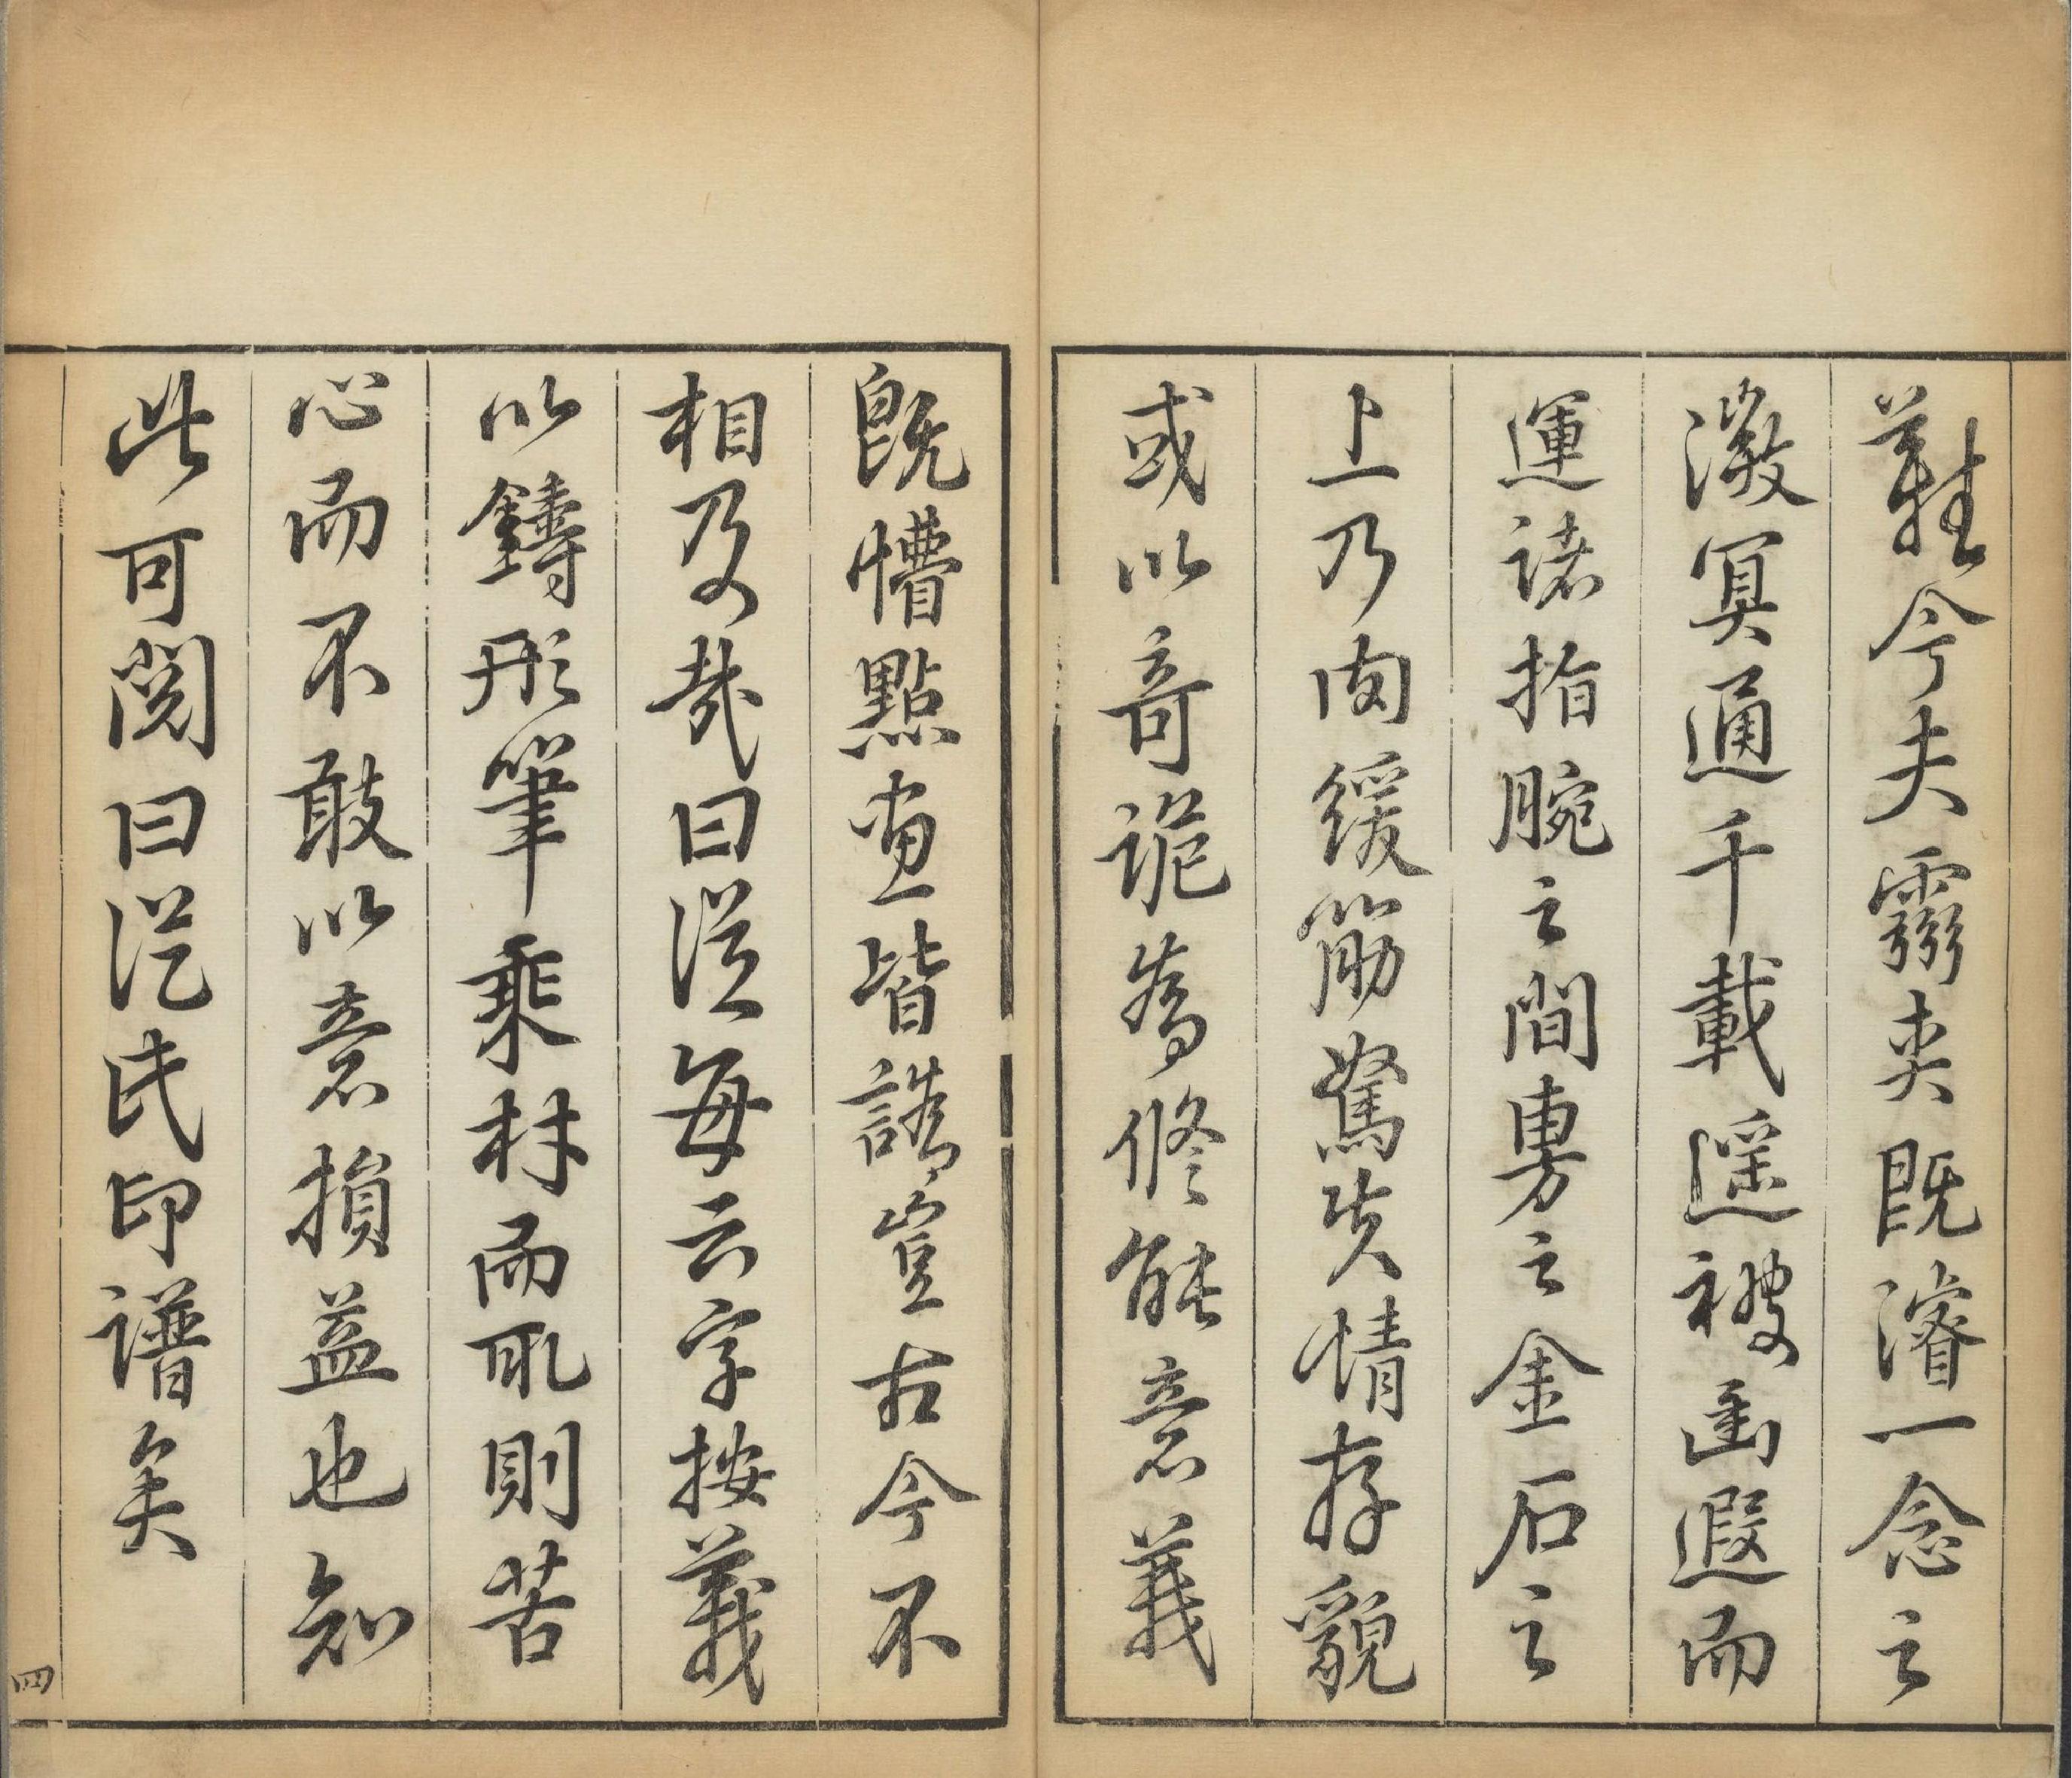 難今夫靈爽既濬一念之
澂冥通千載遥被幽遐而
運諸指腕之間旉之金石之
上乃肉緩筋駑失情存貌
或以奇詭為修能意義
既懵點畫皆謬豈古今不
相及哉曰從每云字按義
以鑄形筆乘材而取則苦
心而不敢以意損益也知
此可閱曰從氏印譜矣
四